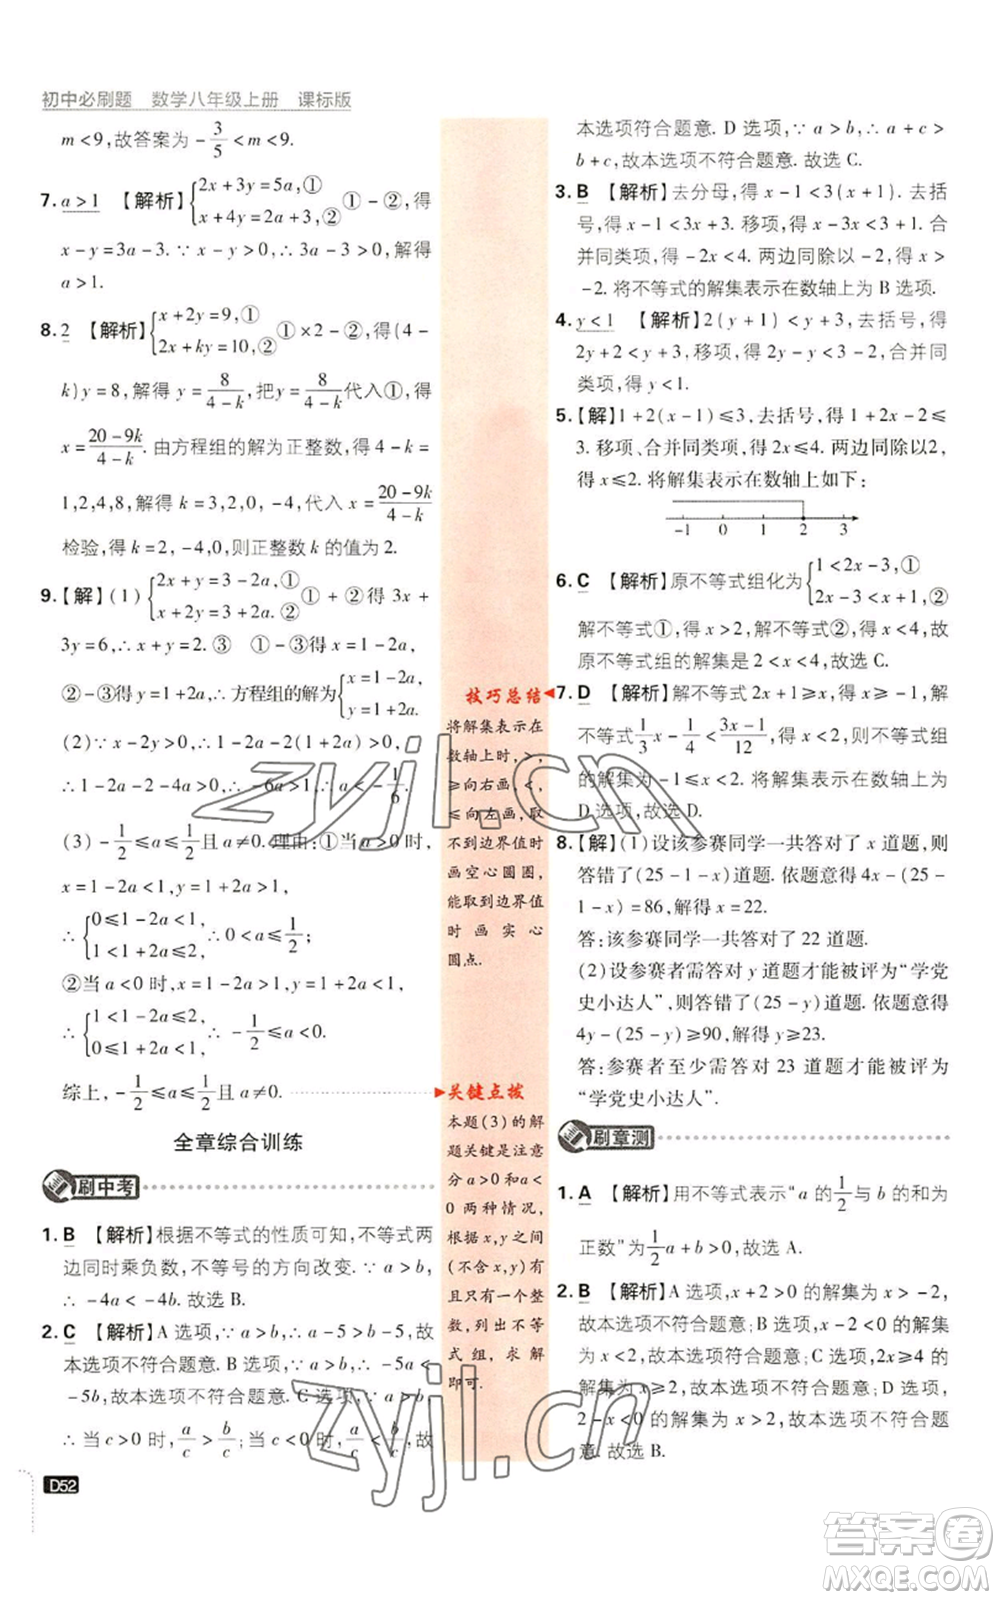 初中必刷题 数学八年级上册 课标版
m<9,故答案为-3/5<m<9.
7. a>1 【解析】{2x+3y=5a,① x+4y=2a+3,② ①-②,得
x-y=3a-3.∵x-y>0,∴3a-3>0,解得
a>1.
8. 2 【解析】{x+2y=9,① 2x+ky=10,② ①×2-②,得(4-
k)y=8,解得y=8/(4-k),把y=8/(4-k)代入①,得
x=(20-9k)/(4-k).由方程组的解为正整数,得4-k=
1,2,4,8,解得k=3,2,0,-4,代入x=(20-9k)/(4-k)
检验,得k=2,-4,0,则正整数k的值为2.
9.【解】(1){2x+y=3-2a,① x+2y=3+2a.② ①+②得3x+
3y=6,∴x+y=2.③ ①-③得x=1-2a,
②-③得y=1+2a,∴方程组的解为{x=1-2a, y=1+2a.
(2)∵x-2y>0,∴1-2a-2(1+2a)>0,
∴1-2a-2-4a>0,∴-6a>1,∴a<-1/6.
(3)-1/2≤a≤1/2且a≠0.理由:①当a>0时,
x=1-2a<1,y=1+2a>1,
∴{0≤1-2a<1, 1<1+2a≤2, ∴0<a≤1/2;
②当a<0时,x=1-2a>1,y=1+2a<1,
∴{1<1-2a≤2, 0≤1+2a<1, ∴-1/2≤a<0.
综上,-1/2≤a≤1/2且a≠0.
全章综合训练
刷中考
1. B 【解析】根据不等式的性质可知,不等式两
边同时乘负数,不等号的方向改变.∵a>b,
∴-4a<-4b.故选B.
2. C 【解析】A选项,∵a>b,∴a-5>b-5,故
本选项不符合题意.B选项,∵a>b,∴-5a<
-5b,故本选项不符合题意.C选项,∵a>b,
∴当c>0时,a/c>b/c;当c<0时,a/c<b/c,故
D52
技巧总结
将解集表示在
数轴上时,>,
≥向右画,<,
≤向左画,取
不到边界值时
画空心圆圈,
能取到边界值
时画实心
圆点.
关键点拨
本题(3)的解
题关键是注意
分a>0和a<
0两种情况,
根据x,y之间
(不含x,y)有
且只有一个整
数,列出不等
式组,求解
即可.
本选项符合题意.D选项,∵a>b,∴a+c>
b+c,故本选项不符合题意.故选C.
3. B 【解析】去分母,得x-1<3(x+1).去括
号,得x-1<3x+3.移项,得x-3x<3+1.
合并同类项,得-2x<4.两边同除以-2,得x>
-2.将不等式的解集表示在数轴上为B选项.
4. y<1 【解析】2(y+1)<y+3,去括号,得
2y+2<y+3,移项,得2y-y<3-2,合并同
类项,得y<1.
5.【解】1+2(x-1)≤3,去括号,得1+2x-2≤
3.移项、合并同类项,得2x≤4.两边同除以2,
得x≤2.将解集表示在数轴上如图:
-1 0 1 2 3
6. C 【解析】原不等式组化为{1<2x-3,① 2x-3<x+1,②
解不等式①,得x>2,解不等式②,得x<4,故
原不等式组的解集是2<x<4.故选C.
7. D 【解析】解不等式2x+1≥x,得x≥-1,解
不等式1/3x-1/4<(3x-1)/12,得x<2,故不等式组
的解集为-1≤x<2.将解集表示在数轴上为
D选项,故选D.
8.【解】(1)设该参赛同学一共答对了x道题,则
答错了(25-1-x)道题.依题意得4x-(25-
1-x)=86,解得x=22.
答:该参赛同学一共答对了22道题.
(2)设参赛者需答对y道题才能被评为“学党
史小达人”,则答错了(25-y)道题.依题意得
4y-(25-y)≥90,解得y≥23.
答:参赛者至少需答对23道题才能被评为
“学党史小达人”.
刷章测
1. A 【解析】用不等式表示“a的1/2与b的和为
正数”为1/2a+b>0,故选A.
2. B 【解析】A选项,x+2>0的解集为x>-2,
故本选项不符合题意;B选项,x-2<0的解集
为x<2,故本选项符合题意;C选项,2x≥4的
解集为x≥2,故本选项不符合题意;D选项,
2-x<0的解集为x>2,故本选项不符合题
意.故选B.
zyjl.cn
zyjl.cn
答案圈
MXQE.COM